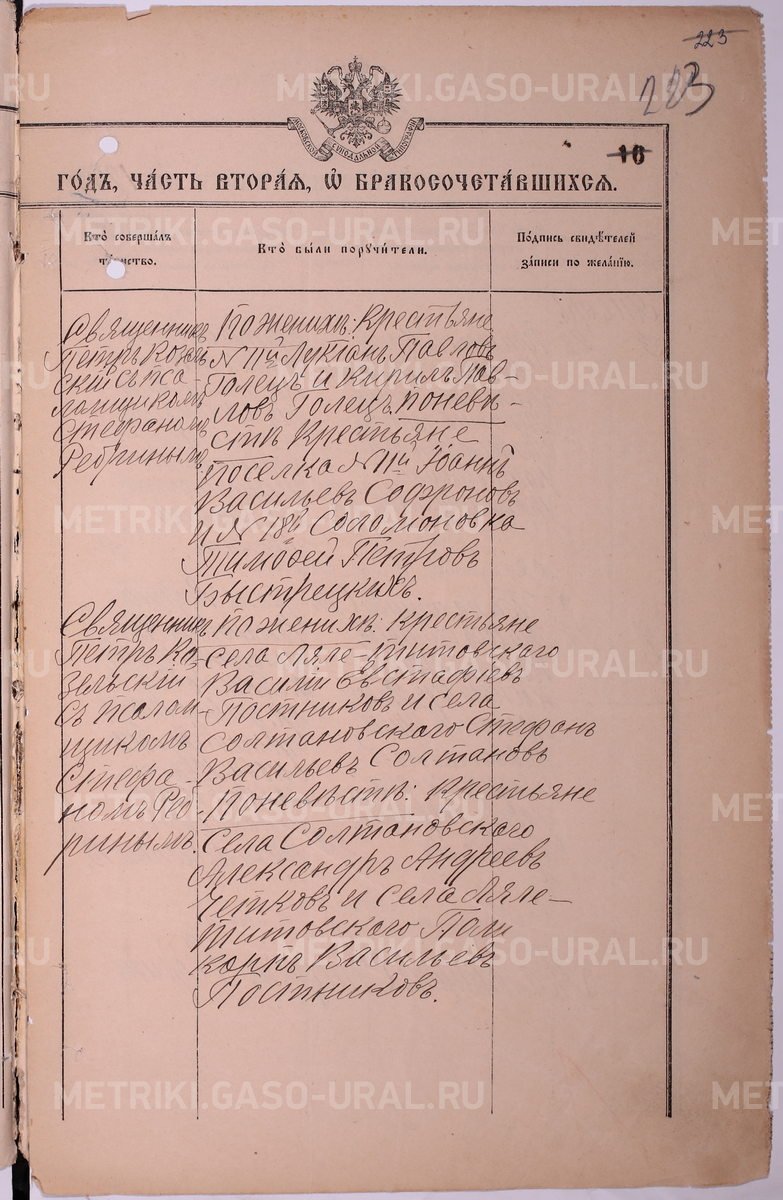 225
223
МОСКОВСКОЙ СѴНОДАЛЬНОЙ ТИПОГРАФІИ
16
ГО́ДЪ, ЧА́СТЬ ВТОРА́Ѧ, Ѽ БРАКОСОЧЕТА́ВШИХСѦ.
Кто̀ соверша́лъ та́инство.
Кто̀ бы́ли поручи́тели.
По́дпись свидѣ́телей за́писи по жела́нїю.
Священникъ
Петръ Козель
скій съ пса
ломщикомъ
Стефаномъ
Ребриным
По женихѣ: Крестьяне
№ 11й Лукіанъ Павловъ
Голецъ и Кирилъ Пав-
ловъ Голецъ, по невѣ-
стѣ Крестьяне
поселка № 11й Іоаннъ
Васильевъ Софроновъ
и № 18й Соломоновка
Тимоѳей Петровъ
Быстрецкихъ.
Священникъ
Петръ Ко
зельскій
съ псалом-
щикомъ
Стефа-
номъ Реб
ринымъ.
По женихѣ: Крестьяне
села Ляле-Титовскаго
Василій Евстафіевъ
Постниковъ и села
Солтановскаго Стефанъ
Васильевъ Солтановъ
По невѣстѣ: Крестьяне
села Солтановскаго
Александръ Андреевъ
Четковъ и села Ляле-
Титовскаго Поли
карпъ Васильевъ
Постниковъ.
METRIKI.GASO-URAL.RU